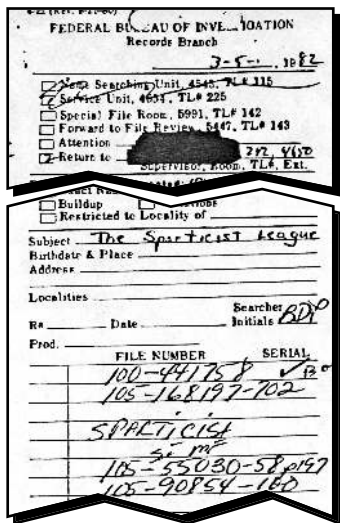 FEDERAL BUREAU OF INVESTIGATION
Records Branch
3-5- 1982
Name Searching Unit, 4543, TL# 115
Service Unit, 4654, TL# 225
Special File Room, 5991, TL# 142
Forward to File Review, 5447, TL# 143
Attention
Return to 4650
Supervisor, Room, TL#, Ext.
Buildup
Restricted to Locality of
Subject The Sparticist League
Birthdate & Place
Address
Localities
Searcher
R# Date Initials
Prod.
FILE NUMBER SERIAL
100-441758
105-168197-702
SPARTICIST
105-55030-58
105-90854-180